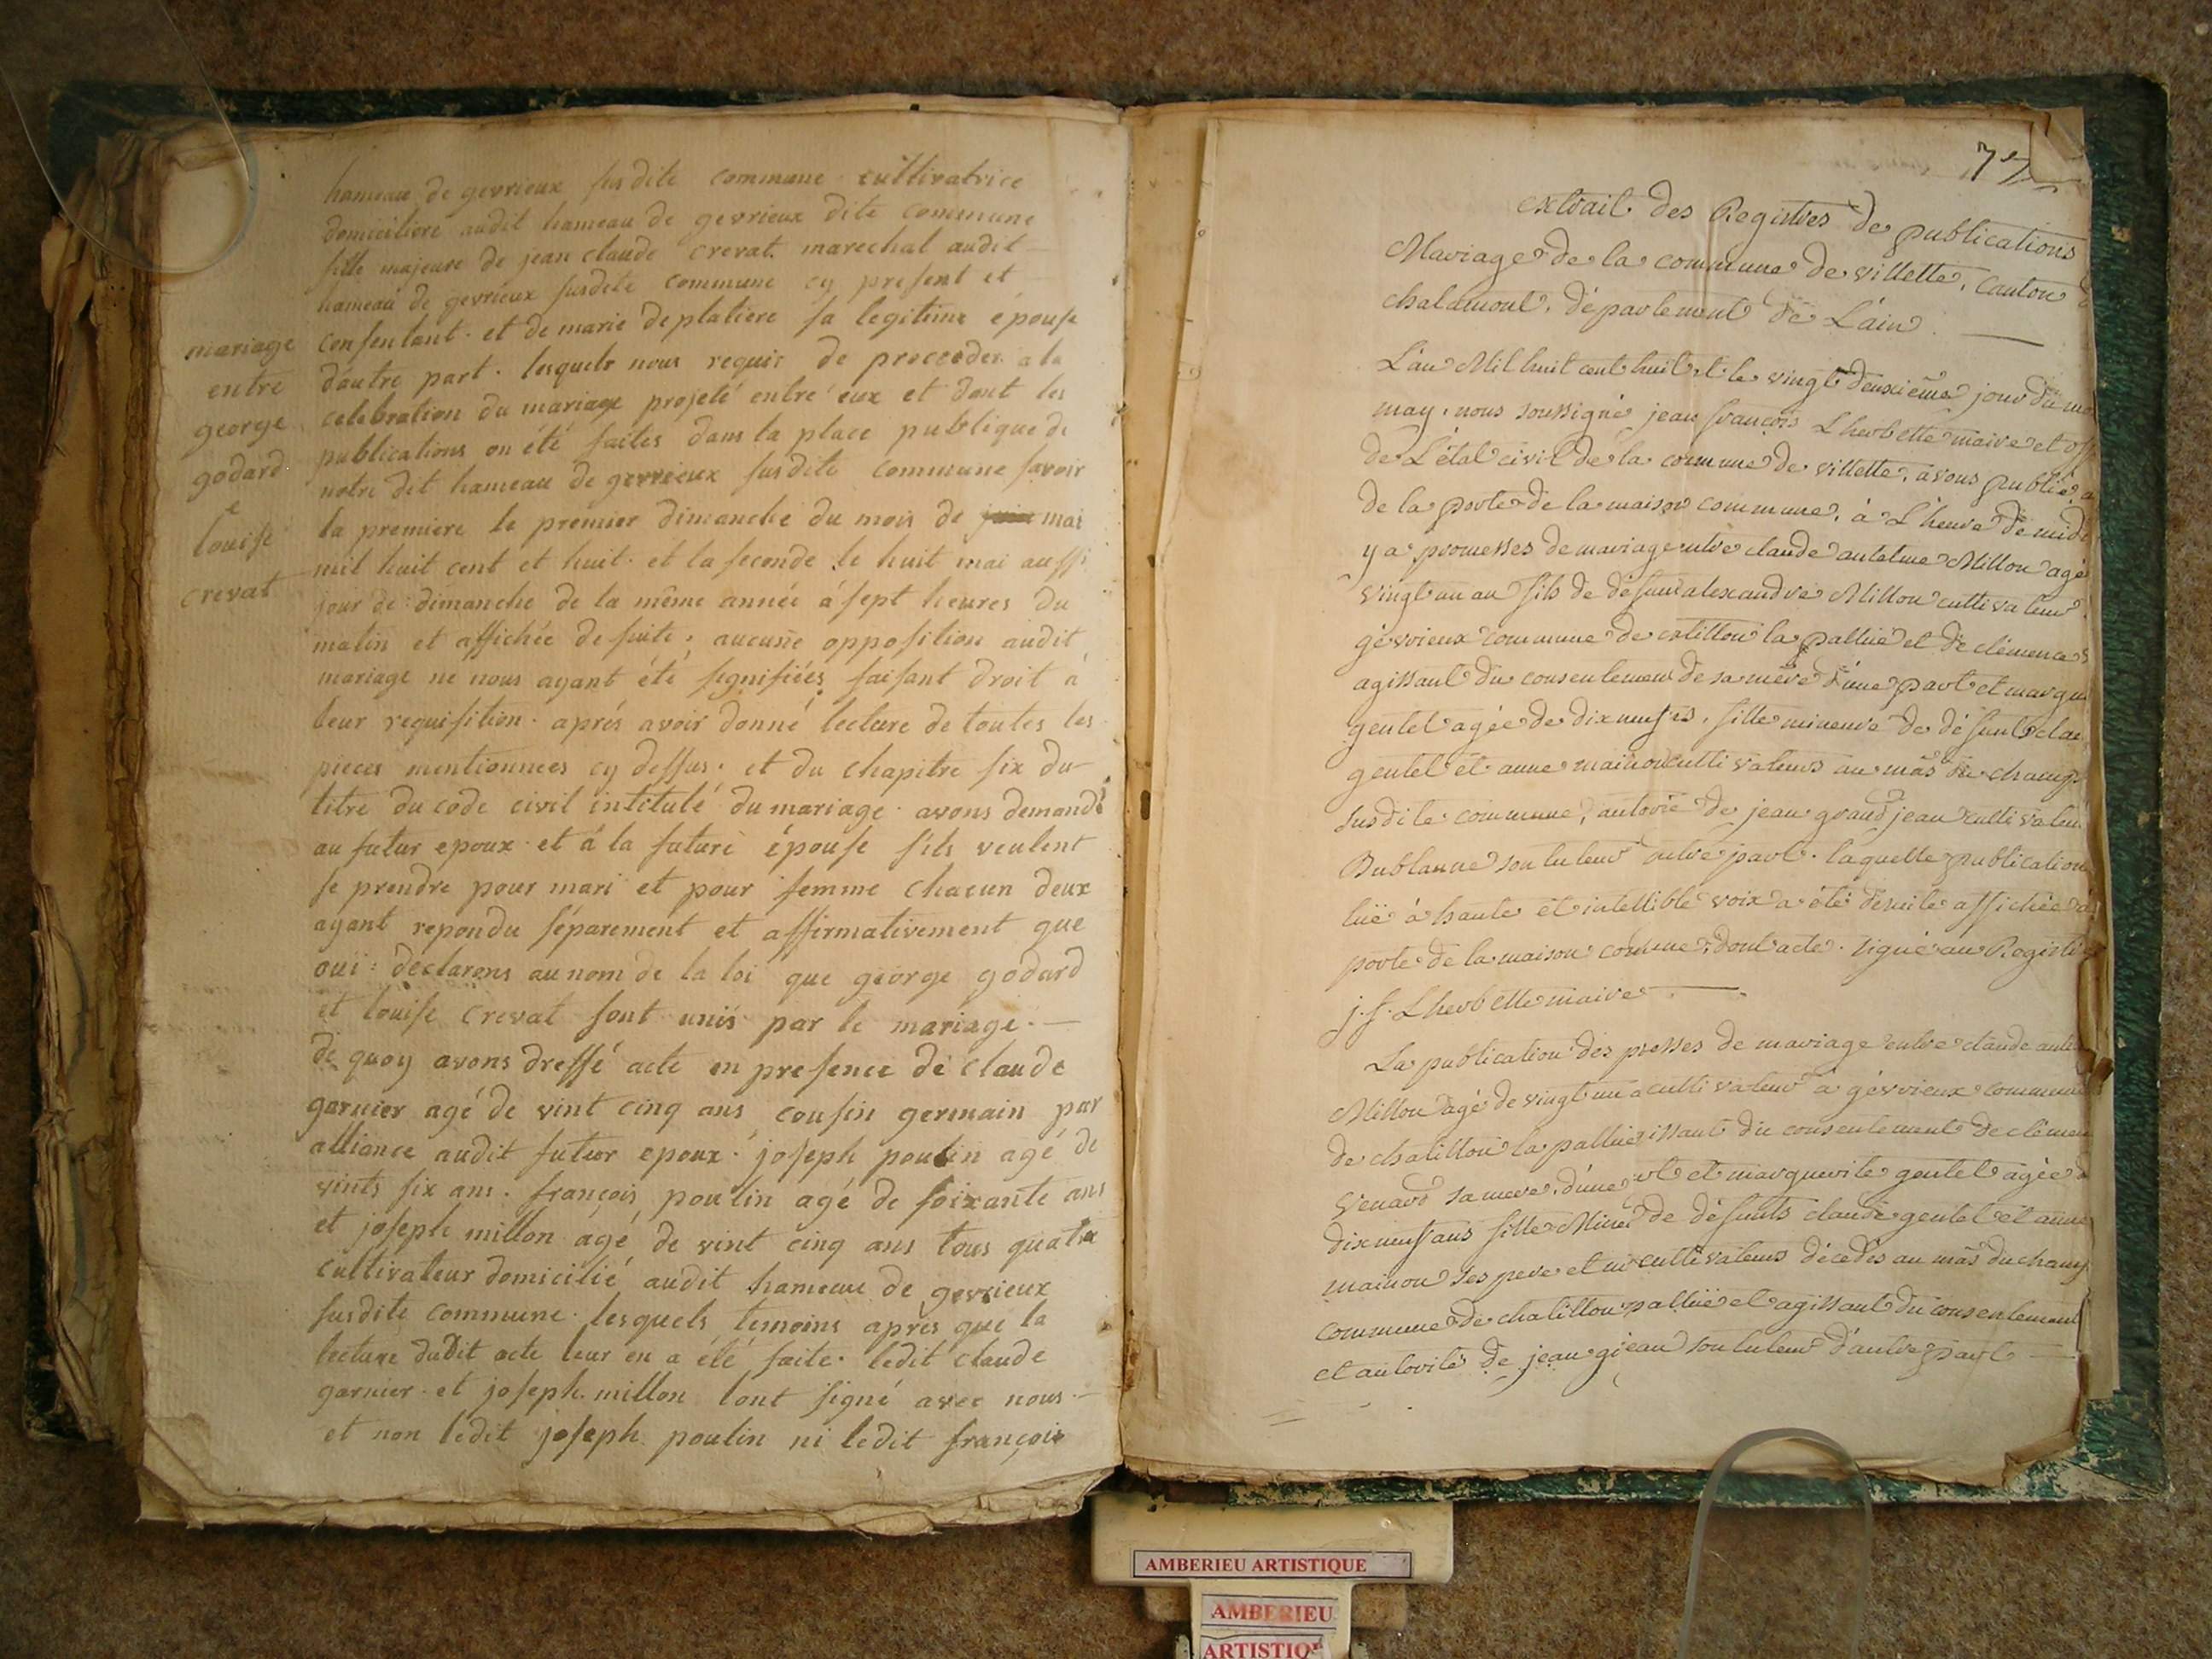 hameau de gevrieux susdite commune cultivatrice
domiciliere audit hameau de gevrieux dite commune
fille majeure de jean claude crevat marechal audit
hameau de gevrieux susdite commune cy present et
consentant. et de marie deplatiere sa legitime épouse
d'autre part. lesquels nous requis de proceeder a la
celebration du mariage projeté entre eux et dont les
publications on été faites dans la place publique de
notre dit hameau de gevrieux susdite commune savoir
la premiere le premier dimanche du mois de juin mai
mil huit cent et huit. et la seconde le huit mai aussi
jour de dimanche de la même année à sept heures du
matin et affichée de suite, aucune opposition audit
mariage ne nous ayant été signifiées, faisant droit à
leur requisition. aprés avoir donné lecture de toutes les
pieces mentionnees cy dessus. et du chapitre six du
titre du code civil intitulé du mariage. avons demandé
au futur epoux et à la future épouse s'ils veulent
se prendre pour mari et pour femme chacun deux
ayant repondu séparement et affirmativement que
oui: déclarons au nom de la loi que george godard
et louise crevat sont unis par le mariage. —
de quoy avons dressé acte en presence de claude
garnier agé de vint cinq ans, cousin germain par
alliance audit futur epoux. joseph poulin agé de
vints six ans. françois poulin agé de soixante ans
et joseph millon agé de vint cinq ans tous quatre
cultivateur domicilié audit hameau de gevrieux
susdite commune. lesquels temoins après que la
lecture dudit acte leur en a été faite. ledit claude
garnier. et joseph. millon l'ont signé avec nous. —
et non ledit joseph poulin ni ledit françois
mariage
entre
george
godard
e
louise
crevat
77
extrait des Registres de publications
Mariage de la commune de villette, canton d
chalamont, département de L'ain. —
L'an Mil huit cent huit et le vingt deuxième jour du mo
may, nous soussigné jean françois Lherbette maire et off
de L'état civil de la commune de villette, avons publié, a
de la porte de la maison commune, à L'heure de midi
y a promesses de mariage entre claude antelme Millon agé
vingt un an fils de défunt alexandre Millon cultivateur
gévrieux commune de catillon la pallüe et de clémence
agissant du consentement de sa mère d'une part et margu
gentet agée de dix neuf, fille mineure de défunts clau
gentet et anne mainon cultivateurs au mas de champ
susdite commune, autorié de jean grandjean cultivateu
Bublanne son tuteur autre part. laquelle publication
lüe à haute et intellible voix a été de suite affichée à
porte de la maison comune, dont acte. signé au Registre
j. f. Lherbette maire. —
La publication des pesses de mariage entre claude ante
Millon agé de vingt un a cultivateur à gévrieux commune
de chatillon la pallüe issant du consentement de clémen
Venard sa mere, d'une rt et marguerite gentet agée d
dix neuf ans fille Mine de défunts claude gentet et anne
mainon ses pere et m cultivateurs décédés au mas du champ
commune de chatillon pallüe et agissant du consentement
et autorité de jean g jean son tuteur d'autre part —
AMBERIEU ARTISTIQUE
AMBERIEU
ARTISTIQU